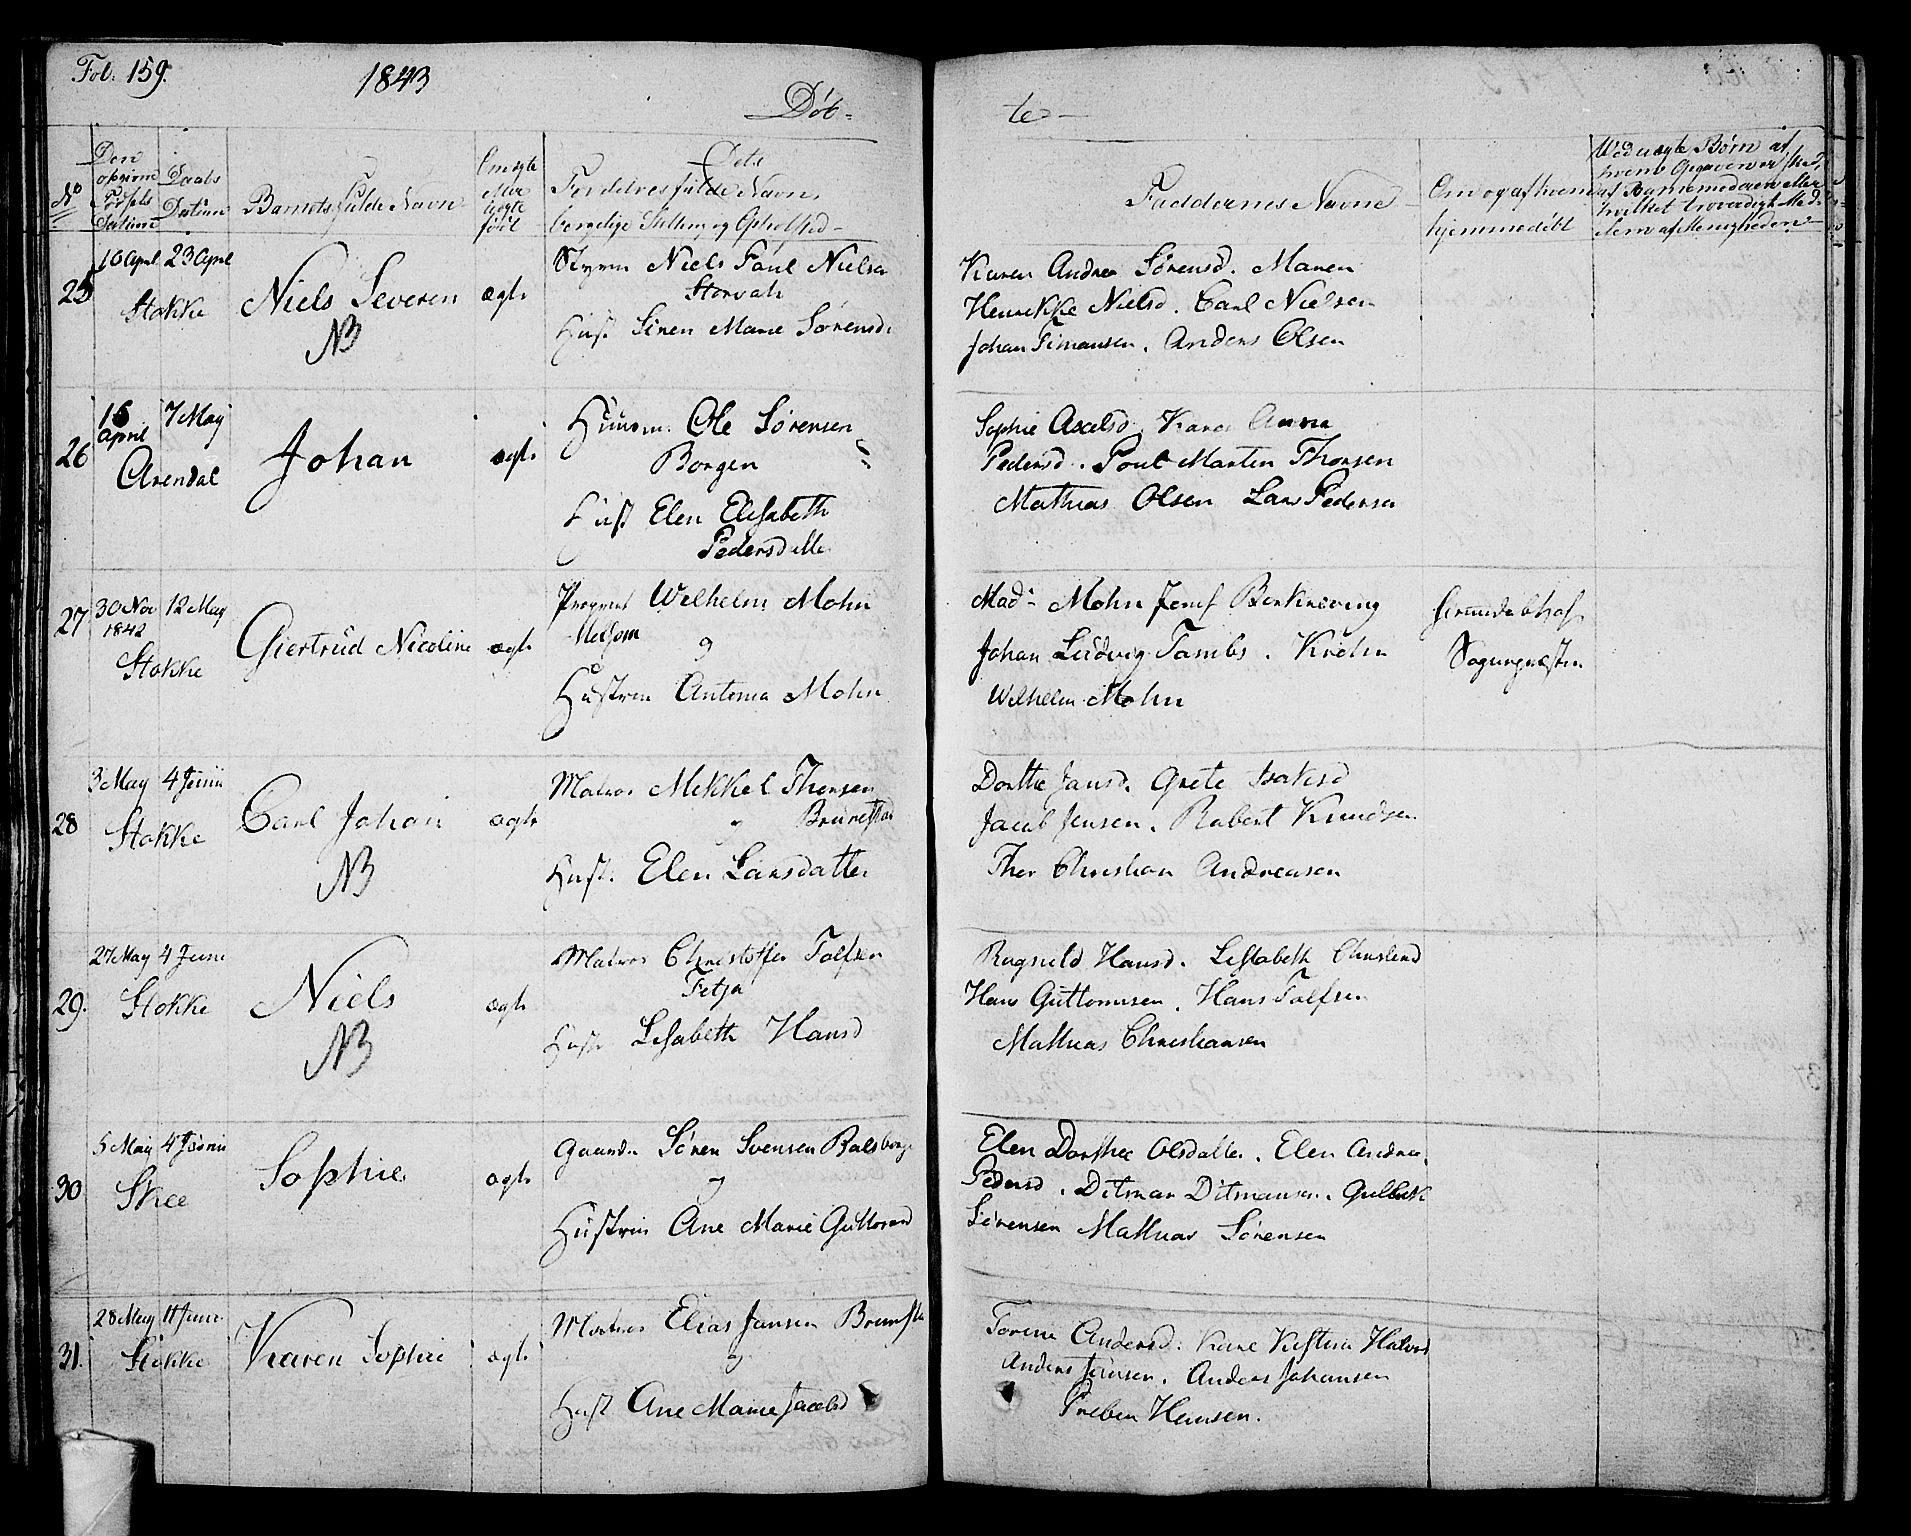 Fol. 159.
1843
Døb-
te
No
Den
opgivne
Fødsels
Datum
Daabs
Datum
Barnets fulde Navn
Om ægte
eller
uægte
født
Dets
Forældres fulde Navn,
borgelige Stilling og Opholsted
Faddernes Navne
Om og af hvem
hjemmedøbt
Ved uægte Børn af
hvem Opgaven er skeed,
af Barnemoderen eller
hvilket troværdigt Med-
lem af Menigheden
25
10 April 23 April
Stokke
Niels Severen
NB
ægte
Styrm Niels Paul Nielsen
Hust Siren Marie Sørensd.
Karen Andrea Sørensd. Maren
Henrikke Nielsd. Carl Nielsen
Johan Simonsen. Anders Olsen
26
16 April 7 May
Arendal
Johan
ægte
Huusm. Ole Sørensen
Borgen
Hust Elen Elisabeth
Pedersdatter
Sophie Axelsd. Karen Anna
Pedersd. Poul Martin Thorsen
Mathias Olsen Lars Pedersen
27
30 Nov 12 May
1842
Stokke
Giertrud Nicoline
ægte
Wilhelm Mohn
Melsom
og
Hustrue Antonia Mohn
Mad. Mohn Jomf
Johan Ludvig Tambs. Krohn
Wilhelm Mohn
Sognepræsten
28
3 May 4 Junii
Stokke
Carl Johan
NB
ægte
Matros Mikkel Thorsen
Brunestad
Hust. Elen Larsdatter
Dorthe Jansd. Grete Isaksd
Jacob Jensen. Robert Knudsen
Thor Christian Andreasen
29.
27 May 4 Juni
Stokke
Niels
NB
ægte
Matros Christoffer Tolfsen
Fetja
Hust Lisabeth Hansd
Ragnild Hansd. Lisabeth Christensd
Hans Guttormsen. Hans Tolfsen
Mathias Christiansen
30
5 May 4 Junii
Skee
Sophie
ægte
Gaardm Søren Svensen Balsberge
og
Hustrue Ane Marie Guttormsd
Elen Dorthee Olsdatter. Elen Andrea
Pedersd. Ditman Ditmansen. Gulbrek
Sørensen Mathias Sørensen
31.
28 May 11 Juni
Stokke
Karen Sophie
ægte
Matros Elias Jansen Brunesta
og
Hust Ane Marie Jacobsd
Torine Andersd. Karen Kistine Halvorsd
Anders Jansen. Anders Johansen
Preben Hansen.